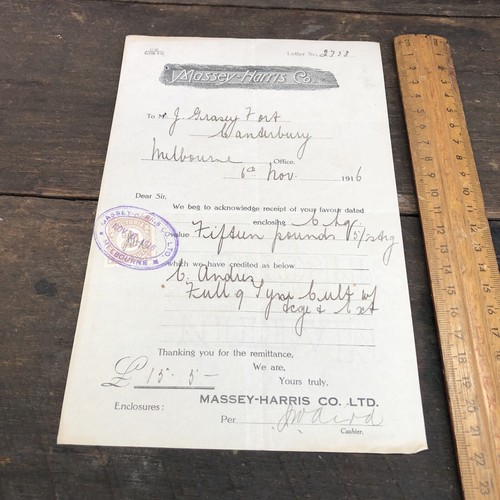 Letter No. 2738
Massey-Harris Co.
To Mr J. Grasey Fort
Canterbury
Melbourne Office,
6th Nov. 1916
Dear Sir,
We beg to acknowledge receipt of your favour dated
enclosing Chq
value Fifteen pounds 5/
which we have credited as below
C. Andres
Full 9 Tyne Cult w/
& Ext
MASSEY-HARRIS CO. LTD.
NOV 1916
MELBOURNE
Thanking you for the remittance,
We are,
£ 15 . 5 . -
Yours truly,
MASSEY-HARRIS CO. LTD.
Enclosures:
Per
Cashier.
1 2 3 4 5 6 7 8 9 10 11 12 13 14 15 16 17 18 19 20 21 22 23